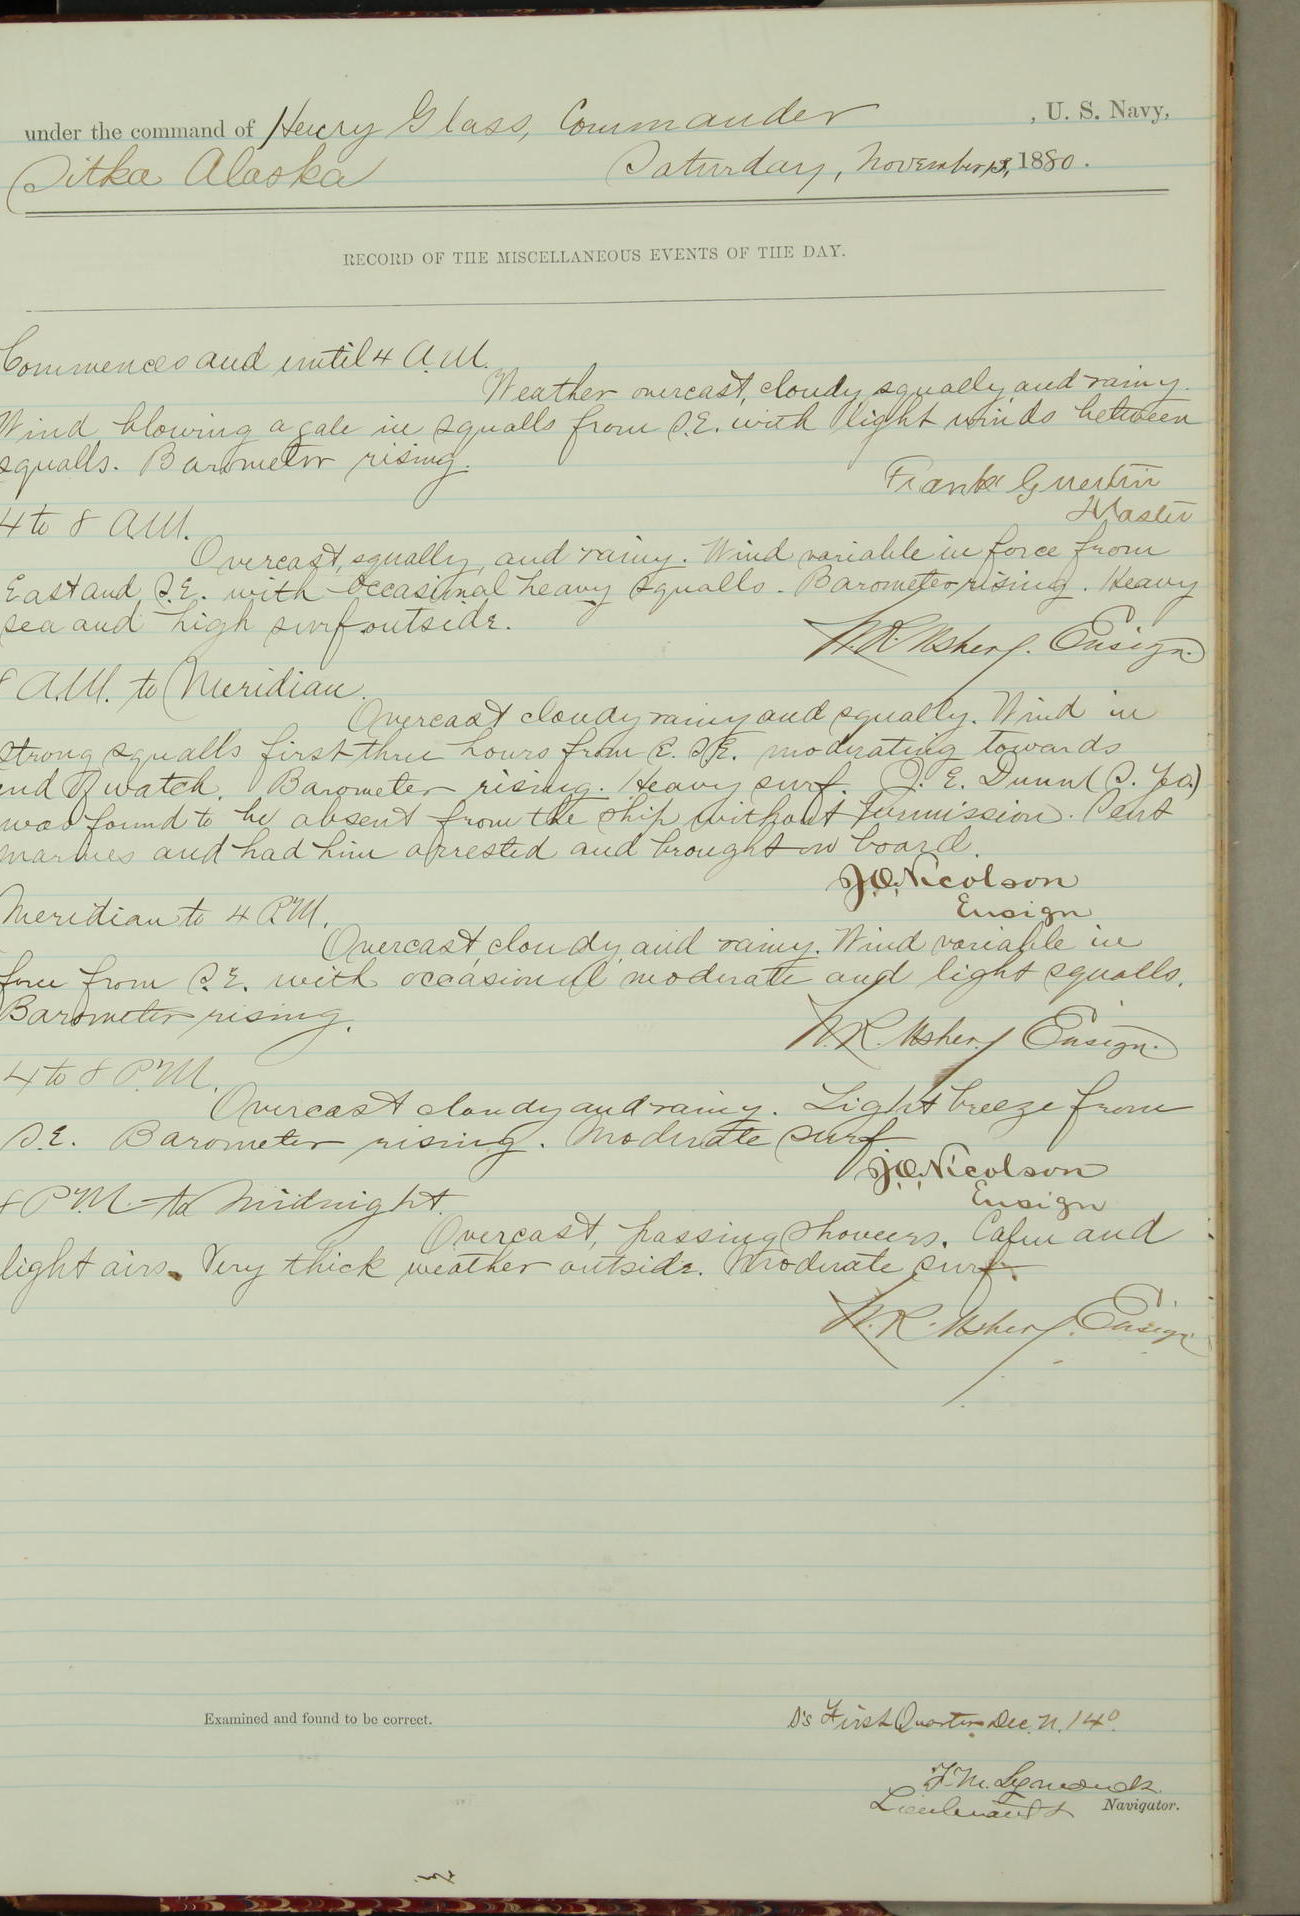 under the command of Henry Glass, Commander , U. S. Navy,
Sitka Alaska Saturday, November 13, 1880.
RECORD OF THE MISCELLANEOUS EVENTS OF THE DAY.
Commences and until 4 A.M.
Weather overcast, cloudy squally and rainy.
Wind blowing a gale in squalls from S.E. with light winds between
squalls. Barometer rising.
Frank Guertin
Master
4 to 8 A.M.
Overcast, squally, and rainy. Wind variable in force from
East and S.E. with occasional heavy squalls. Barometer rising. Heavy
sea and high surf outside.
N.R. Usher, Ensign.
8 A.M. to Meridian.
Overcast cloudy rainy and squally. Wind in
strong squalls first three hours from E.S.E. moderating towards
end of watch. Barometer rising. Heavy surf. J. E. Dunn
was found to be absent from the ship without permission. Sent
marines and had him arrested and brought on board.
J.O. Nicolson
Ensign
Meridian to 4 P.M.
Overcast, cloudy and rainy. Wind variable in
force from S.E. with occasional moderate and light squalls.
Barometer rising.
N.R. Usher, Ensign.
4 to 8 P.M.
Overcast cloudy and rainy. Light breeze from
S.E. Barometer rising. Moderate surf
J.O. Nicolson
Ensign
8 P.M. to Midnight.
Overcast, passing showers. Calm and
light airs. Very thick weather outside. Moderate surf.
N.R. Usher, Ensign
Examined and found to be correct.
D's First Quarter Dec. N. 14°
F. M. Symonds
Lieutenant Navigator.